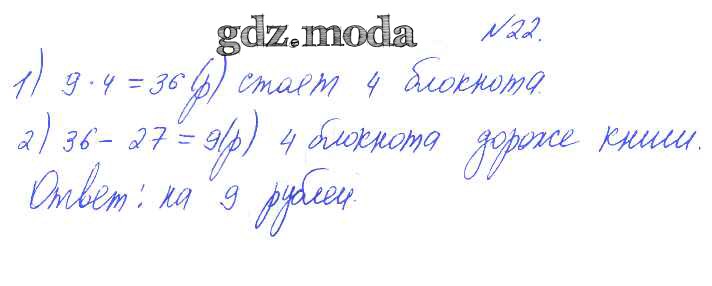 gdz.moda
№22.
1) 9·4=36(р) стоет 4 блокнота.
2) 36-27=9(р) 4 блокнота дороже книги.
Ответ: на 9 рублей.